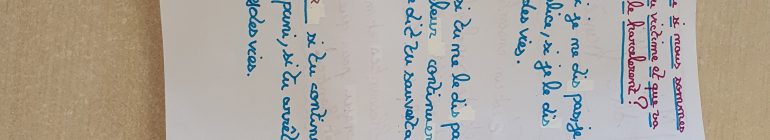 si nous sommes
victime et que va
le harcelerent ?
si je ne dis pas, je
si je le dis
des vies.
si tu me le dis pa
continuer
dit tu sauvera
si tu contin
puni, si tu arrêt
des vies.